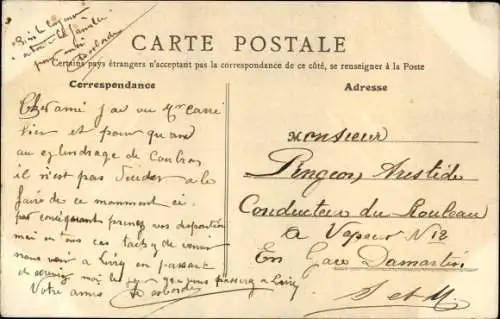 Bien le bonjour
a toute la famille
pour moi
Desbordes
CARTE POSTALE
Certains pays étrangers n'acceptant pas la correspondance de ce côté, se renseigner à la Poste
Correspondance
Adresse
Cher ami j'ai vu Mr Carré
tier et pour quand
au cylindrage de
il n'est pas a le
faire de ce momment ci.
par conséquant prenez vos disposition
mei en tous cas de venir
nous voir a Livry en passant
passerez a Livry
Votre amis Desbordes
Monsieur
Pingeon, Aristide
Conducteur du Rouleau
a Vapeur N 12
En Gare Damartin
S et M.